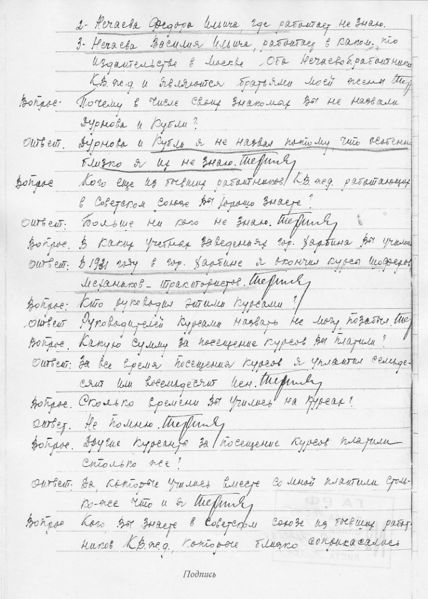 2- Нечаева Федора Ильича, где работает не знаю.
3- Нечаева Василия Ильича, работает в каком, то
издательстве в Москве. Оба Нечаевы работники
К.В.ж.д и являются братьями моей жены
Вопрос: Почему в числе своих знакомых Вы не назвали
Дурнова и Кубли?
Ответ. Дурнова и Кубли я не назвал потому, что особенно
близко я их не знаю.
Вопрос Кого еще из бывших работников К.В.ж.д. работающих
в Советском союзе Вы хорошо знаете?
Ответ: Больше ни кого не знаю.
Вопрос. В каких учебных заведениях гор. Харбина Вы учились
Ответ: В 1931 году в гор. Харбине я окончил курсы шоферов
механиков - трактористов.
Вопрос: Кто руководил этими курсами?
Ответ Руководителей курсами назвать не могу, позабыл.
Вопрос. Какую сумму за посещение курсов Вы платили?
Ответ: За все время посещения курсов я уплатил семьде-
сят или восемьдесят иен.
Вопрос. Сколько времени Вы учились на курсах?
Ответ. Не помню.
Вопрос. Другие курсанты за посещение курсов платили
столько же?
Ответ: Да которые учились вместе со мной платили столь-
ко-же что и я
Вопрос Кого Вы знаете в Советском союзе из бывших работ-
ников К.В.ж.д., которые близко соприкасались
Подпись